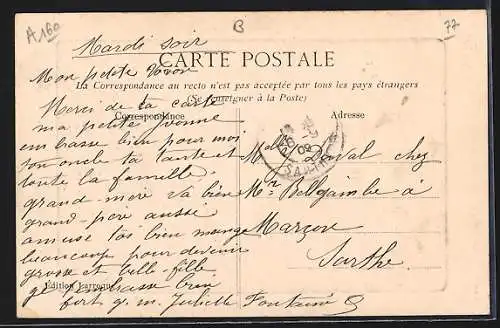 A160
B
77
Mardi soir
CARTE POSTALE
Mon petite Yvon
La Correspondance au recto n'est pas acceptée par tous les pays étrangers
(Se renseigner à la Poste)
Correspondance
Adresse
Merci de ta carte
ma petite yvonne
embrasse bien pour moi
ton oncle ta tante et
toute la famille
grand-mère va bien
grand père aussi
amuse toi bien mange
beaucoup pour devenir
grosse et belle fille
je t'embrasse bien
fort Juliette Fontaine
Duval chez
Mr Bellgambe à
Marçon
Sarthe
SARTHE
Edition